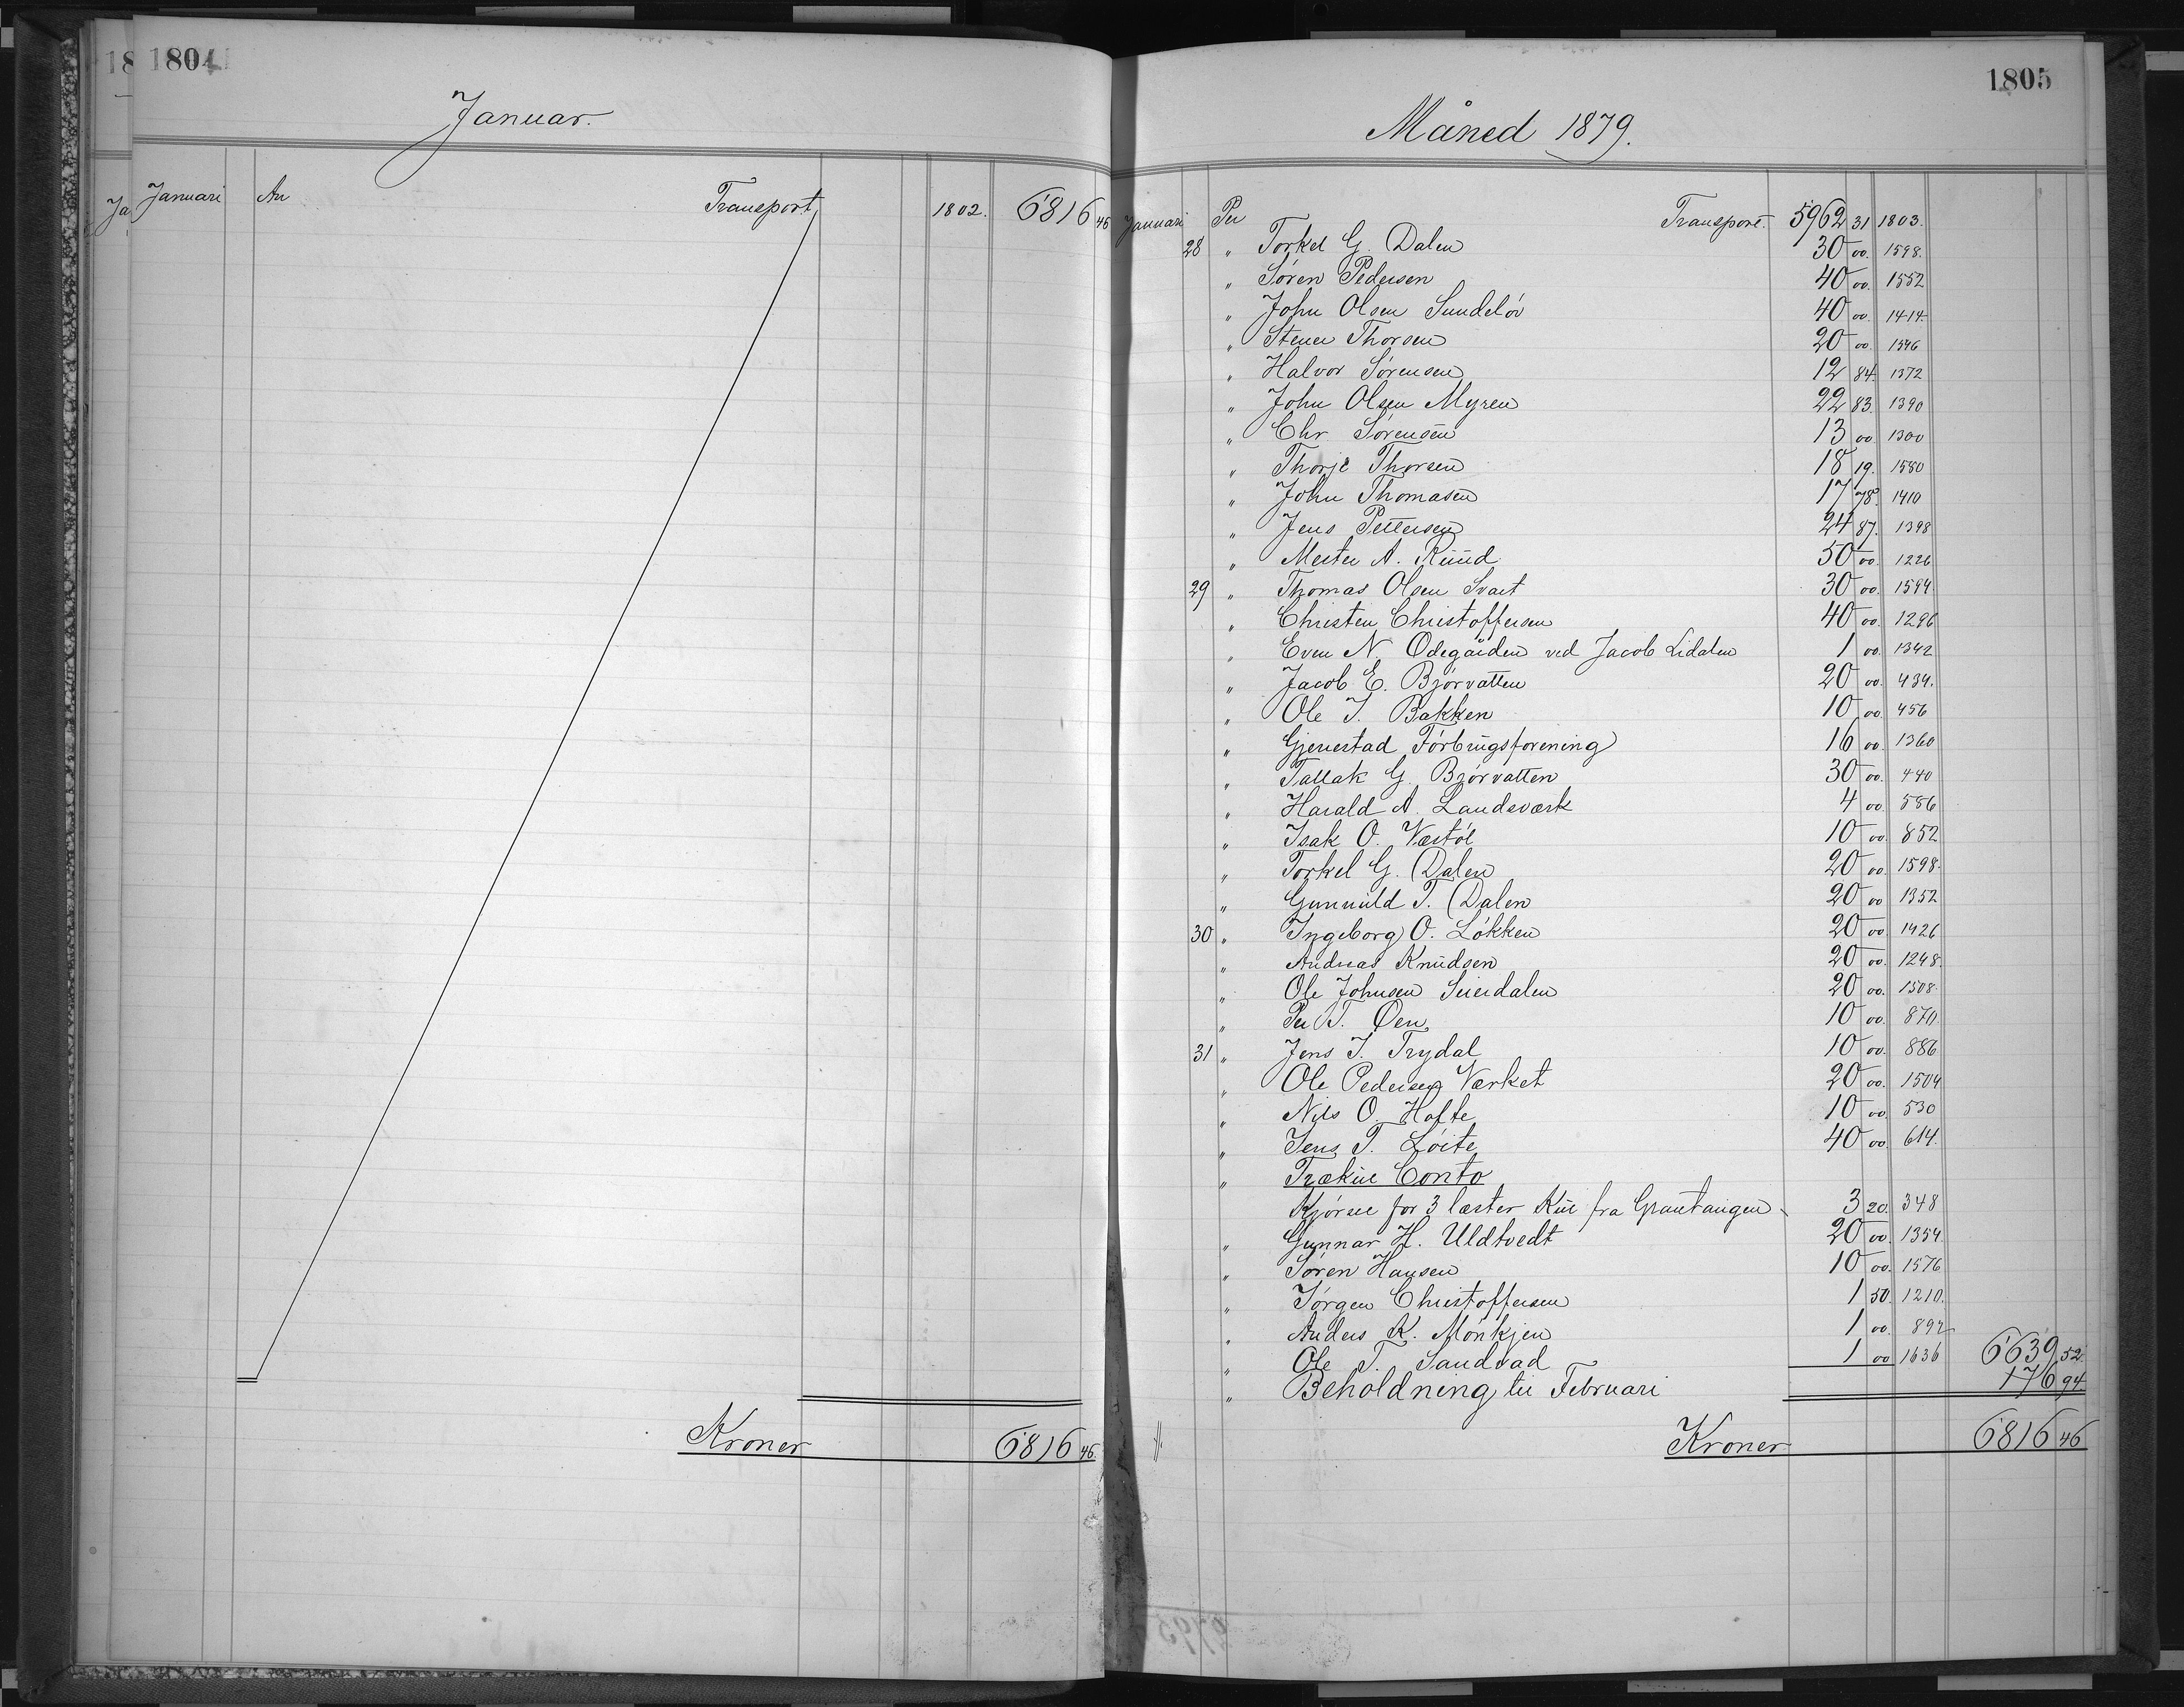 1804
Januar.
Januari An Transport 1802. 6816 46
Kroner 6816 46.
1805
Måned 1879.
Januari Per Transport. 5962 31 1803.
28 " Torkel G. Dalen 30 00. 1598.
" Søren Pedersen 40 00. 1552
" John Olsen Sundeløv 40 00. 1414.
" Stener Thorsen 20 00. 1546
" Halvor Sørensen 12 84. 1372
" John Olsen Myren 22 83. 1390
" Chr Sørensen 13 00. 1300
" Thorje Thorsen 18 19. 1580
" John Thomasen 17 78. 1410
" Jens Pettersen 24 87. 1398
" Mester A. Ruud 50 00. 1226
29 " Thomas Olsen Svart 30 00. 1594
" Christen Christoffersen 40 00. 1296
" Even N. Ødegården ved Jacob Lidalen 1 00. 1342
" Jacob E. Bjørvatten 20 00. 434.
" Ole J. Bakken 10 00 456
" Gjerrestad Forbrugsforening 16 00. 1360
" Tallak G. Bjørvatten 30 00. 440
" Harald A. Landsværk 4 00. 586
" Isak O. Vestøl 10 00. 852
" Torkel G. Dalen 20 00. 1598.
" Gunnuld T. Dalen 20 00 1352
30 " Ingeborg O. Løkken 20 00. 1426
" Andreas Knudsen 20 00. 1248.
" Ole Johnsen Suerdalen 20 00. 1508.
" Per T. Øen 10 00. 870.
31 " Jens J. Trydal 10 00. 886
" Ole Pedersen Værket 20 00. 1504
" Nils O. Hafte 10 00. 530
" Jens T. Løite 40 00. 614.
" Trækul Conto
Kjørsel for 3 læster Kul fra Grantangen 3 20. 348
" Gunnar H. Uldtvedt 20 00. 1354
" Søren Hansen 10 00. 1576
" Jørgen Christoffersen 1 50. 1210.
" Anders K. Mørkjen 1 00. 892
" Ole T. Sandvad 1 00 1636 6639 52.
" Beholdning til Februari 176 94.
Kroner 6816 46